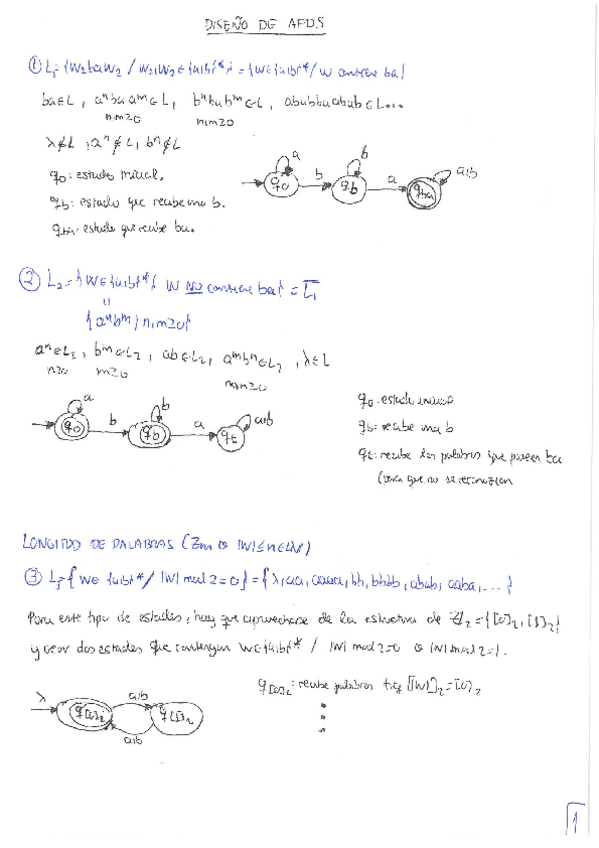 DISEÑO DE AFDS
① L₁={w₁baw₂ / w₁,w₂∈{a,b}*}={w∈{a,b}*/ w contiene ba}
ba∈L, aⁿbaaᵐ∈L, bⁿbabᵐ∈L, ababbaabab∈L...
n,m≥0 n,m≥0
λ∉L, aⁿ∉L, bⁿ∉L
q₀: estado inicial.
q_b: estado que recibe una b.
q_ba: estado que recibe ba.
a b a,b
q₀ b q_b a q_ba
② L₂={w∈{a,b}*/ w NO contiene ba} = L̅₁
"
{aⁿbᵐ / n,m≥0}
aⁿ∈L₂, bᵐ∈L₂, ab∈L₂, aᵐbⁿ∈L₂, λ∈L
n≥0 m≥0 m,n≥0
a b a,b
q₀ b q_b a q_E
q₀: estado inicial
q_b: recibe una b
q_E: recibe las palabras que poseen ba
(para que no se reconozcan
LONGITUD DE PALABRAS (Zm o |w|≤n∈ℕ)
③ L₃={w∈{a,b}*/ |w| mod 2=0}={λ,aa,aaaa,bb,bbbb,abab,aaba,...}
Para este tipo de estados, hay que aprovecharse de la estructura de ℤ₂={[0]₂,[1]₂}
y crear dos estados que contengan w∈{a,b}* / |w| mod 2=0 o |w| mod 2=1.
λ q[0]₂ a,b q[1]₂
a,b
q[0]₂: recibe palabras tq [|w|]₂=[0]₂
1